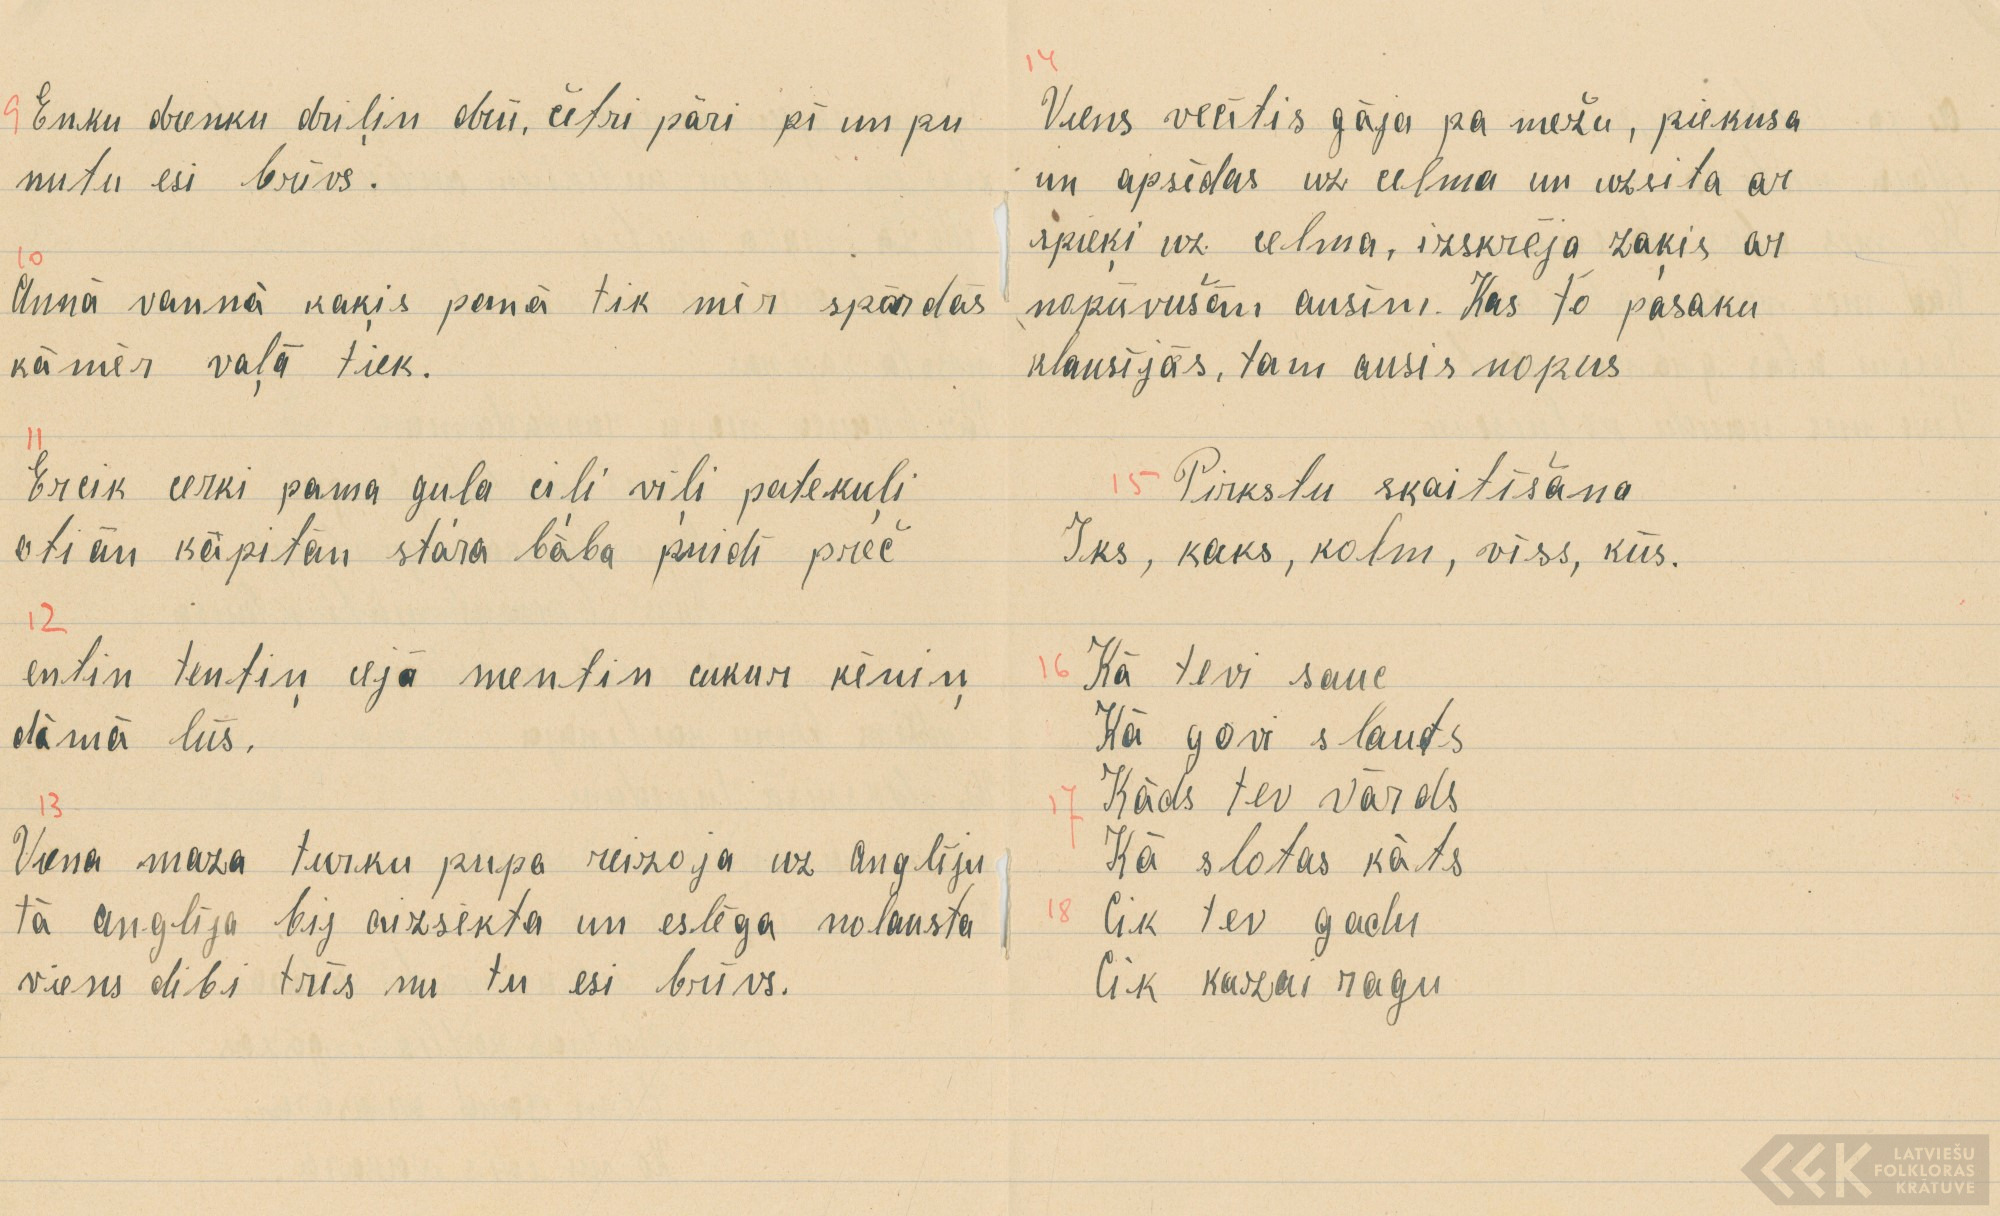 9 Enku drenku driļin drū, četri pāri pī un pu
nutu esi brīvs.
10
Annā vannā kaķis pannā tik mēr spārdās
kāmēr vaļā tiek.
11
Ercik cerki pama gula cili viļi patekuļi
otiān kāpitān stara bāba puidi preč
12
entin tentiņ cejā mentin cukur kēniņ
dāmā lūs.
13
Viena maza turku pupa reizoja uz Angliju
tā Anglija bij aizsēkta un eslēga nolausta
viens dibi trīs nu tu esi brīvs.
14
Viens vecītis gāja pa mežu, piekusa
un apsēdas uz celma un uzsita ar
spieķi uz celma, izskrēja zaķis ar
nopuvušām ausīm. Kas to pasaku
klausījās, tam ausis nopus
15 Pirkstu skaitīšāna
Iks, kaks, kolm, viss, kūs.
16 Kā tevi sauc
Kā govi slauc
17 Kāds tev vārds
Kā slotas kāts
18 Cik tev gadu
Cik kazai ragu
LATVIEŠU
FOLKLORAS
KRĀTUVE